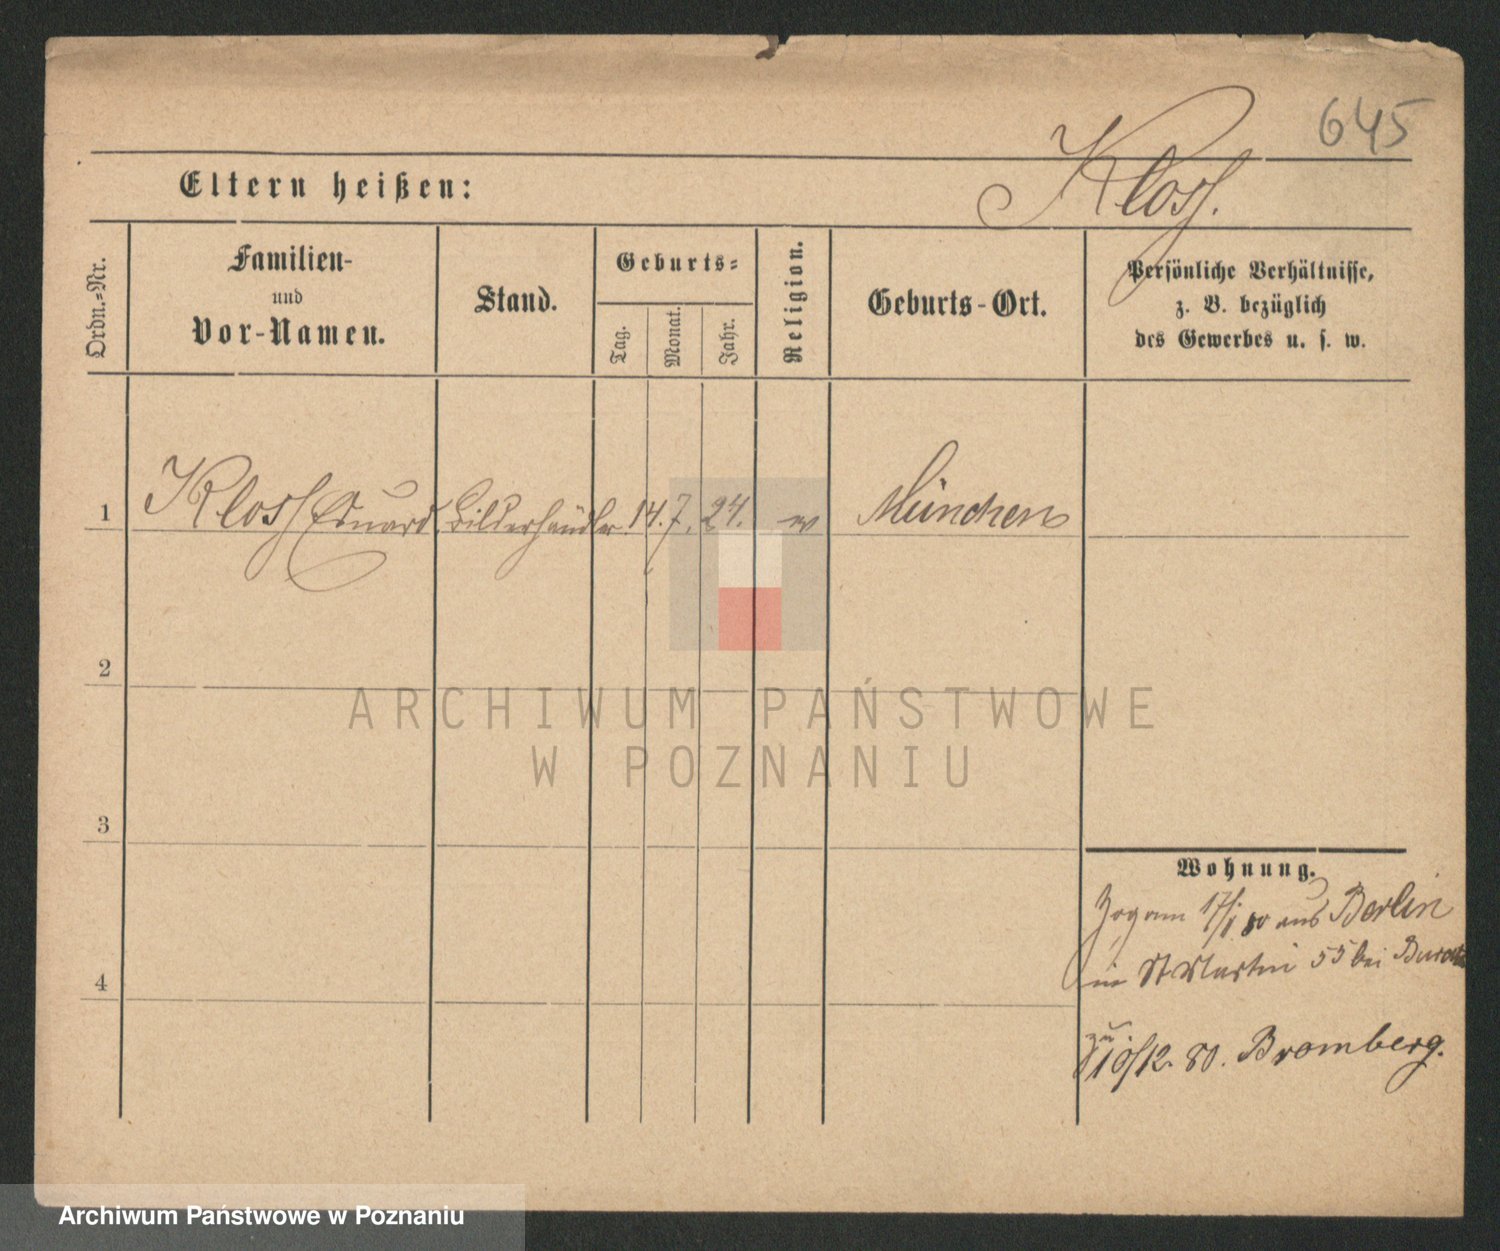 645
Kloss.
Eltern heißen:
Ordn.=Nr.
Familien-
und
Vor-Namen.
Stand.
Geburts=
Tag.
Monat.
Jahr.
Religion.
Geburts-Ort.
Persönliche Verhältnisse,
z. B. bezüglich
des Gewerbes u. s. w.
1 Kloss Eduard. Bilderhändler. 14. 7. 24. München
2
3
4
Wohnung.
Zog am 17/1. 80 aus Berlin
in St Martin 55 bei
10/12. 80. Bromberg.
ARCHIWUM PAŃSTWOWE
W POZNANIU
Archiwum Państwowe w Poznaniu